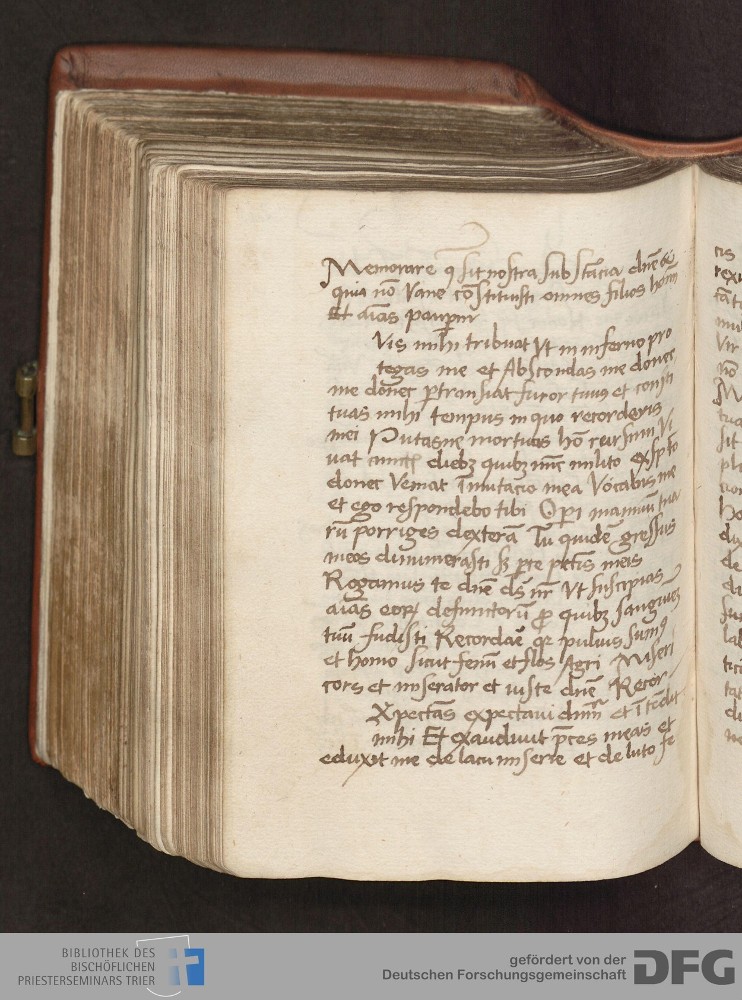 Memorare q̄ sit nostra substācia dn̄e
quia nō vane cōstituisti omnes filios hoīm
Et aīas paup̄m
Vis mihi tribuat Vt in inferno pro
tegas me et Abscondas me donec
me donec p̄transiat furor tuus et consti
tuas mihi tempus in quo recorderis
mei Putasne mortuus hō rursum vi
uat diebꝫ quibꝫ nūc milito exspto
donec veniat īmutacio mea Vocabis me
et ego respondebo tibi Opi manuū tua
rū porriges dexterā Tu quidē gressus
meos dinumerasti sꝫ p̄ce pctīs meis
Rogamus te dn̄e ds̄ nr̄ Vt suscipias
aīas eorꝝ defunctorū p̄ quibꝫ sanguinē
tuū fudisti Recordare qr puluis sumꝰ
et homo sicut fenū et flos Agri Miseri
cors et miserator et iuste dn̄e Recor
Xpectās expectaui dn̄m et ītēdit
mihi Et exaudiuit p̄ces meas et
eduxit me de lacu miserie et de luto fe
cis
rexi
Vir
nō
sit
de
BIBLIOTHEK DES
BISCHÖFLICHEN
PRIESTERSEMINARS TRIER
gefördert von der
Deutschen Forschungsgemeinschaft
DFG